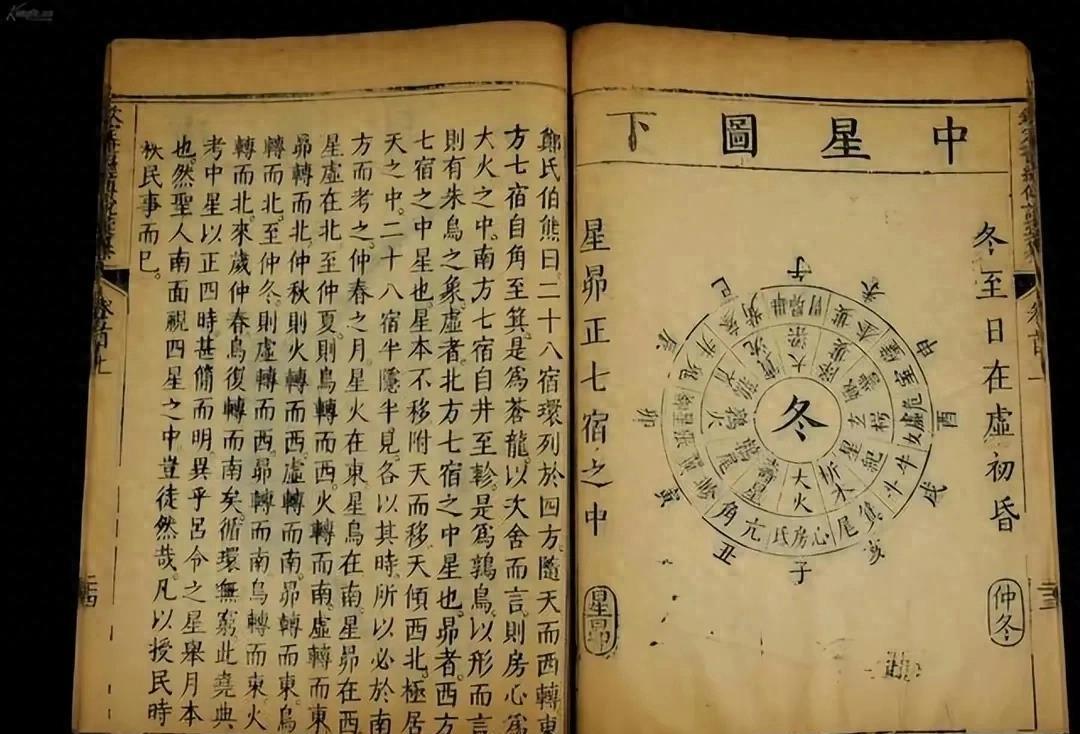 中星圖下
冬至日在虛初昏
仲冬
冬
大火
析木
星紀
玄枵
大梁
鶉火
鶉尾
壽星
氐房心
尾
箕
斗
牛
女虛危
室
井
鬼
角
亢
子
丑
寅
卯
辰
巳
午
申
酉
戌
亥
星昴正七宿之中
星昴
鄭氏伯熊曰二十八宿環列於四方隨天而西轉東
方七宿自角至箕是爲蒼龍以次舍而言則房心爲
大火之中南方七宿自井至軫是爲鶉鳥以形而言
則有朱鳥之象虛者北方七宿之中星也昴者西方
七宿之中星也星本不移附天而移天傾西北極居
天之中二十八宿半隱半見各以其時所以必於南
方而考之仲春之月星火在東星鳥在南星昴在西
星虛在北至仲夏則鳥轉而西火轉而南虛轉而東
昴轉而北仲秋則火轉而西虛轉而南昴轉而東鳥
轉而北至仲冬則虛轉而西昴轉而南鳥轉而東火
轉而北來歲仲春鳥復轉而南矣循環無窮此堯典
考中星以正四時甚簡而明異乎呂令之星舉月本
也然聖人南面視四星之中豈徒然哉凡以授民時
秩民事而已